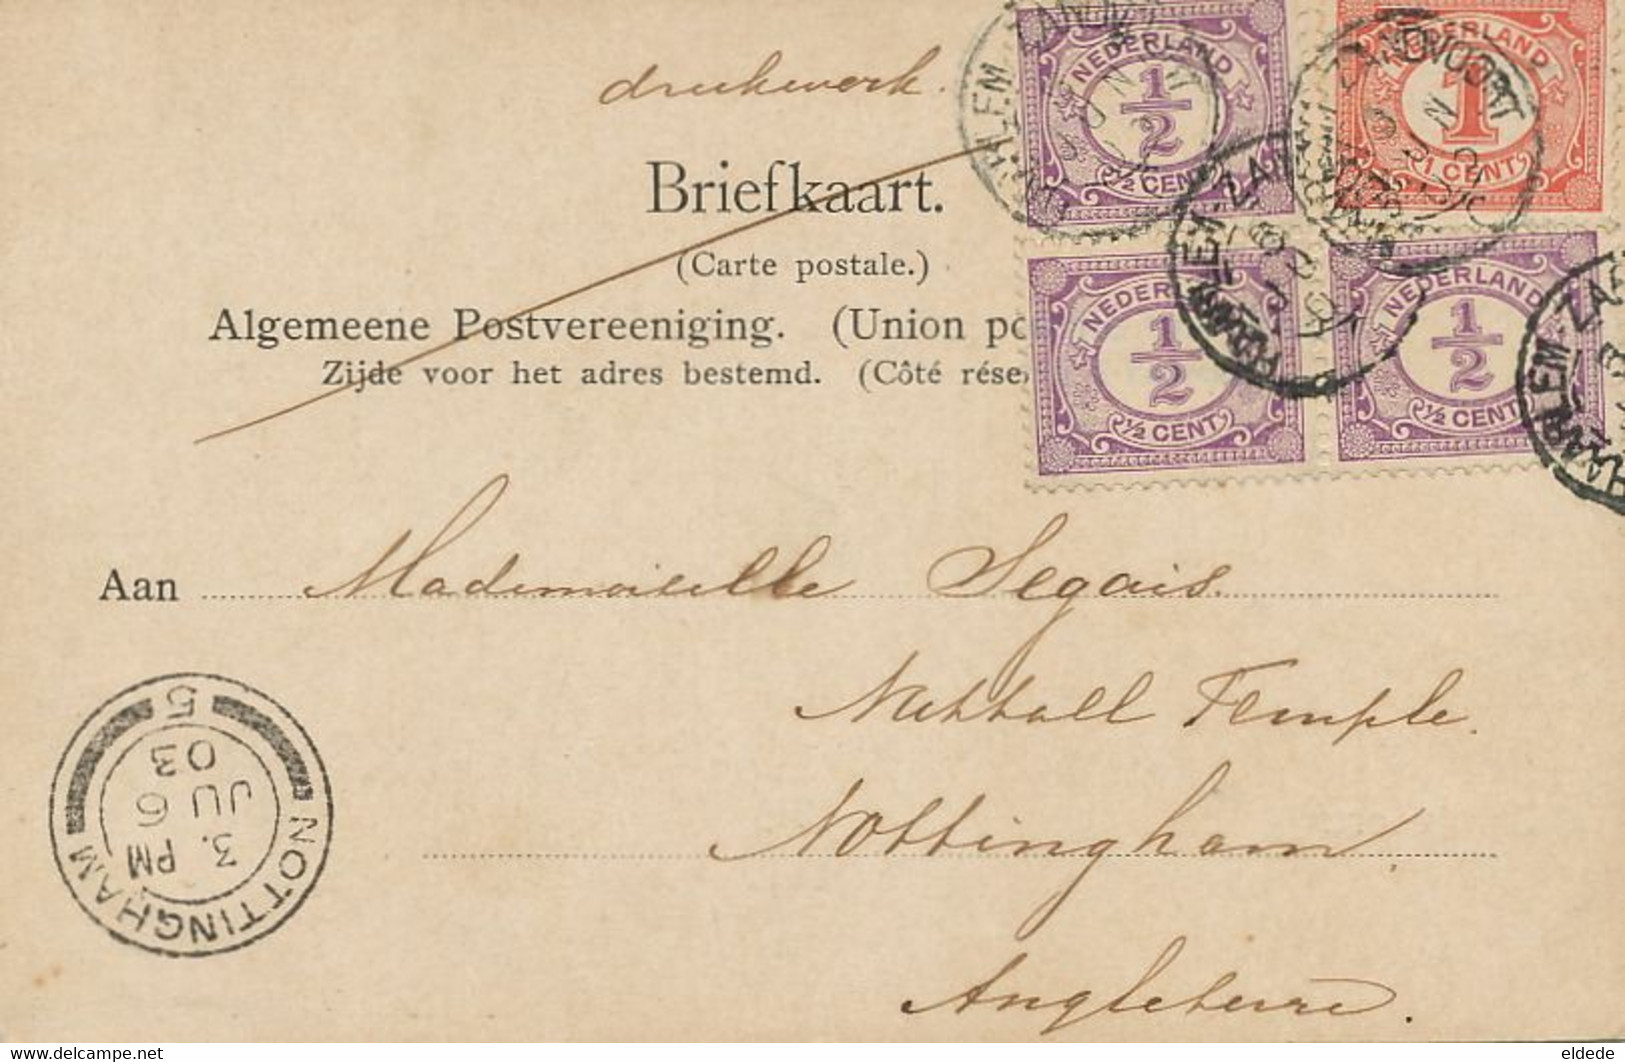 drukwerk.
Briefkaart.
(Carte postale.)
Algemeene Postvereeniging. (Union po
Zijde voor het adres bestemd. (Côté rése
NEDERLAND
1/2
½ CENT
NEDERLAND
1
1 CENT
NEDERLAND
1/2
½ CENT
NEDERLAND
1/2
½ CENT
ZANDVOORT
HAARLEM-ZA
Aan Mademoiselle Segais.
Nuthall Temple.
Nottingham.
Angleterre.
NOTTINGHAM
3. PM
JU 6
03
5
eldede